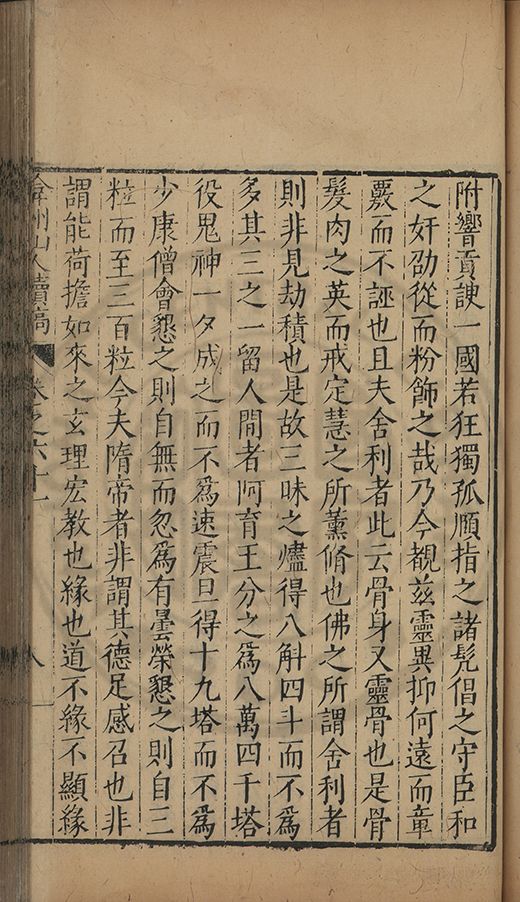 附響貢諛一國若狂獨孤順指之諸髡倡之守臣和
之奸劭從而粉飾之哉乃今覩茲靈異抑何遠而章
覈而不誣也且夫舍利者此云骨身又靈骨也是骨
髮肉之英而戒定慧之所薰脩也佛之所謂舍利者
則非見劫積也是故三昧之燼得八斛四斗而不為
多其三之一留人間者阿育王分之為八萬四千塔
役鬼神一夕成之而不為速震旦得十九塔而不為
少康僧會懇之則自無而忽為有曇榮懇之則自三
粒而至三百粒今夫隋帝者非謂其德足感召也非
謂能荷擔如來之玄理宏教也緣也道不緣不顯緣
弇州山人續稿 卷之六十一 八